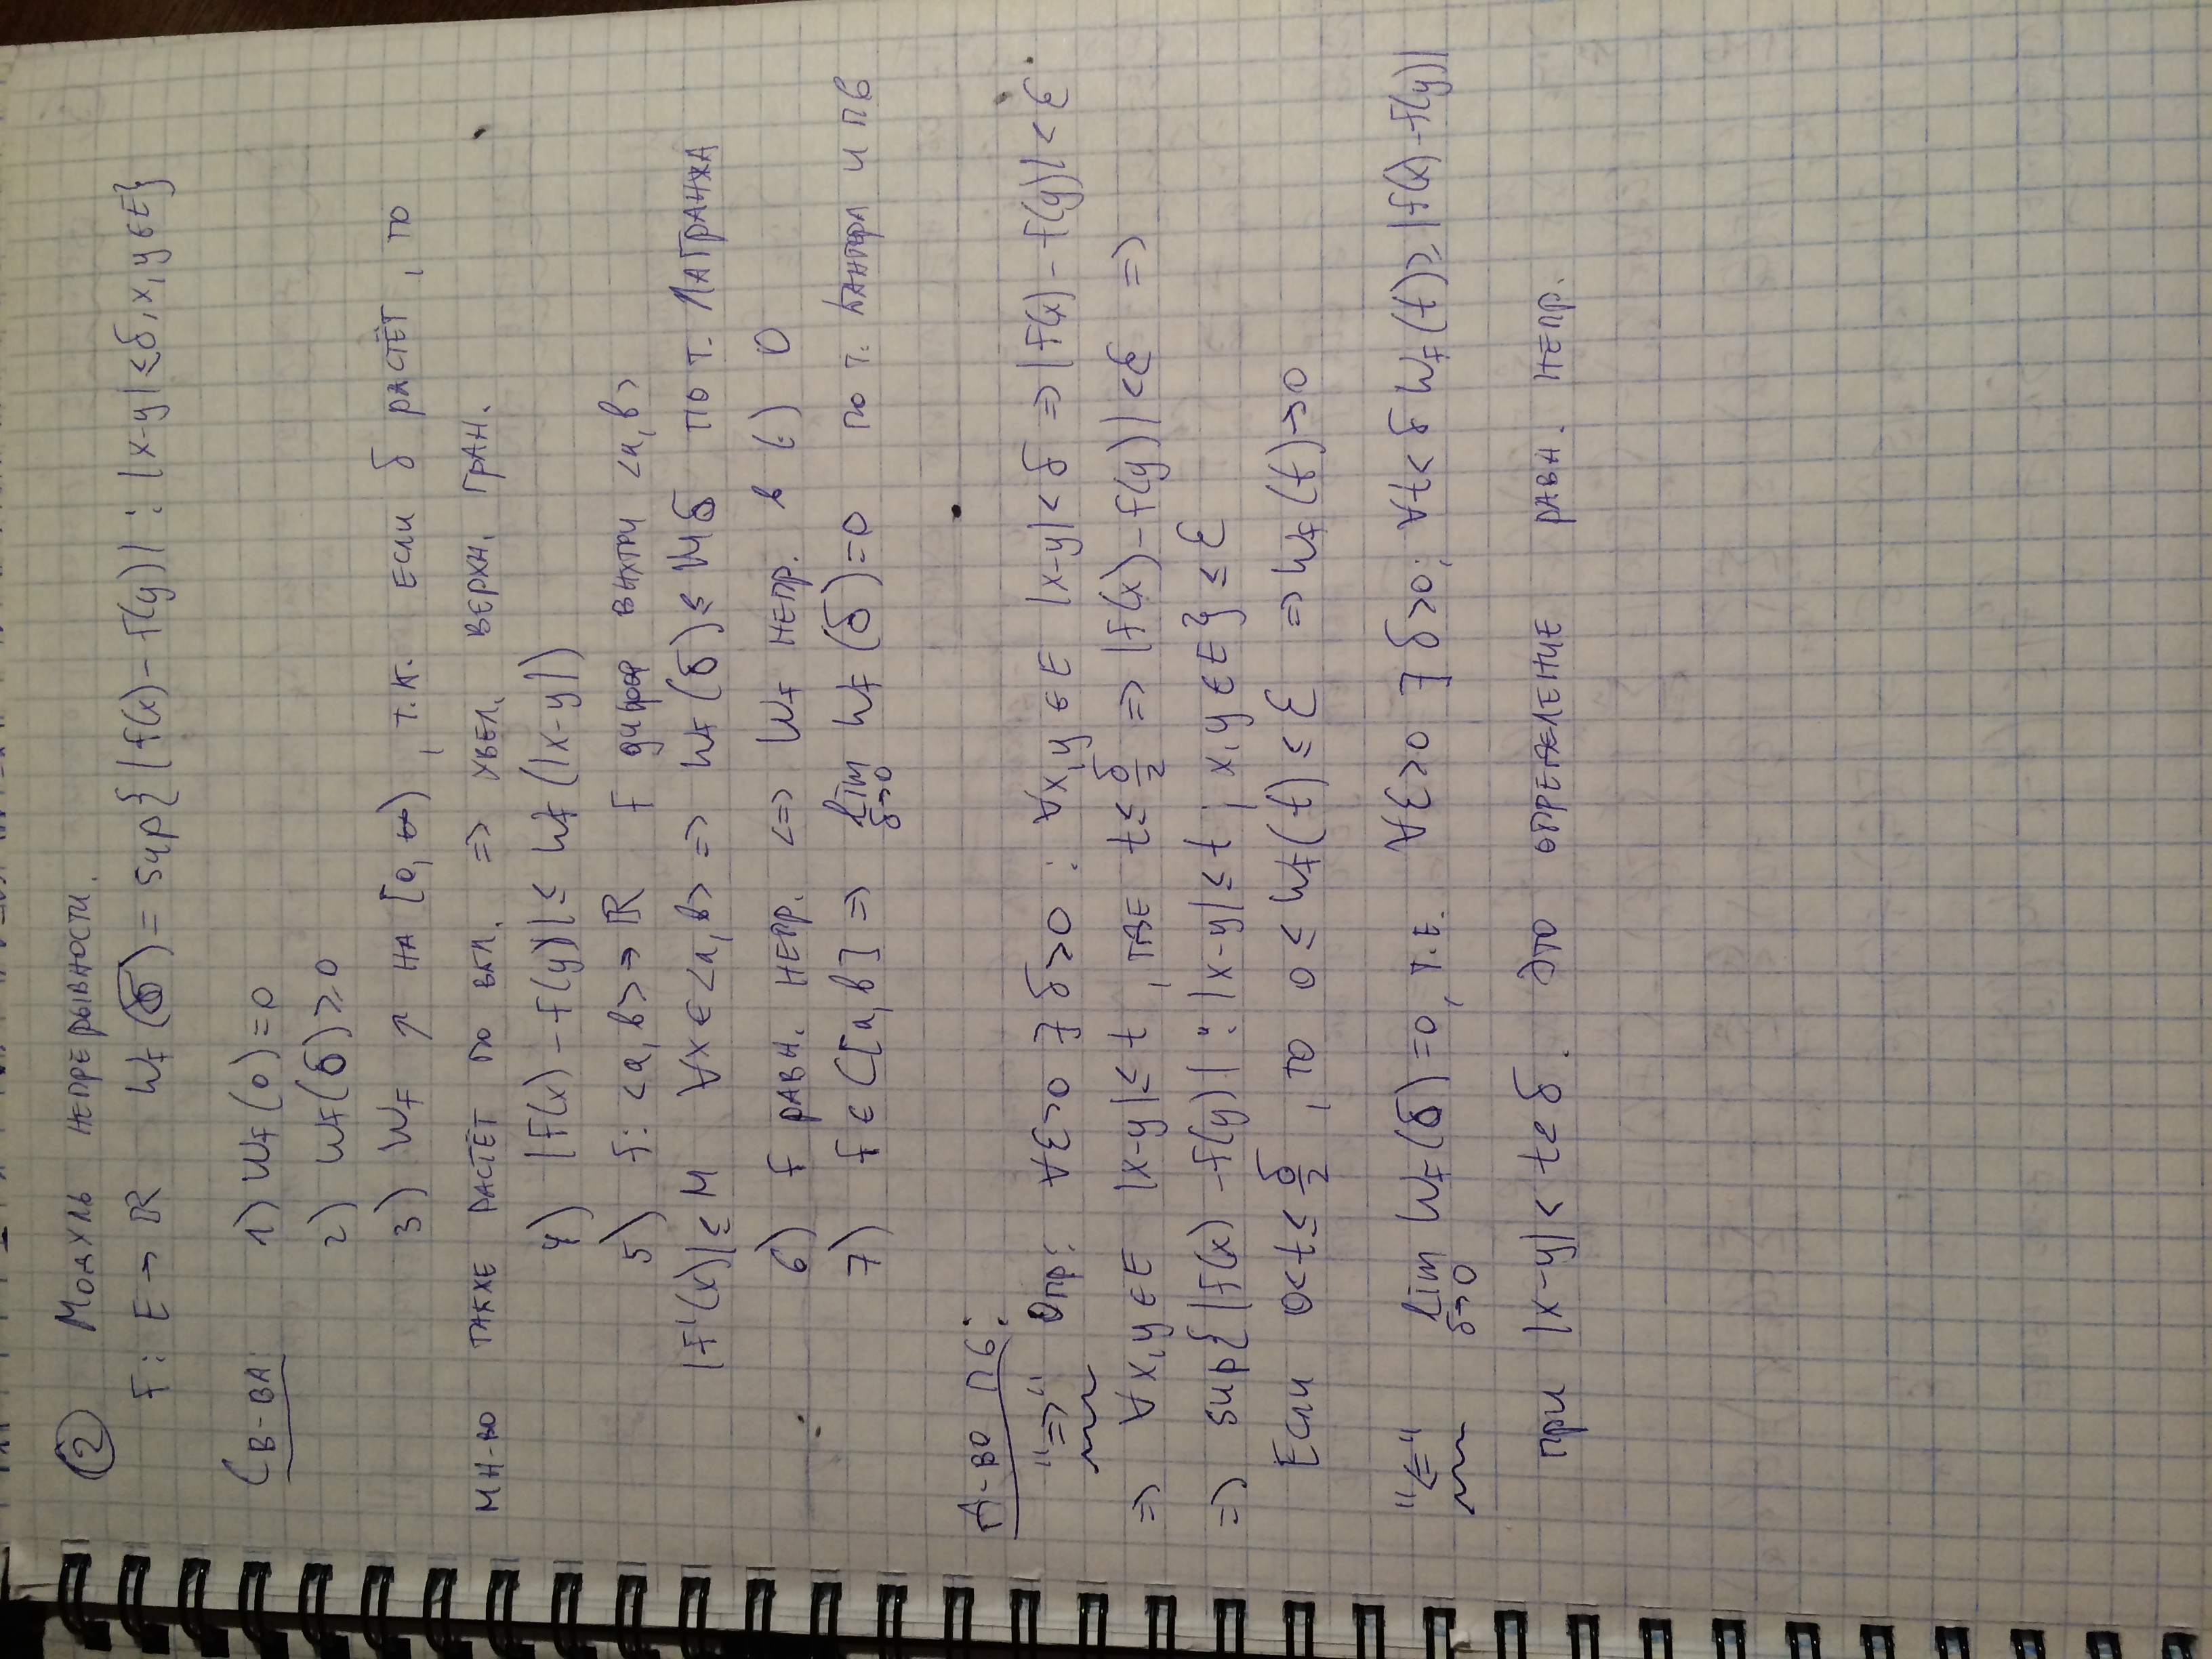 ② Модуль непрерывности.
f: E → ℝ ω_f(δ) = sup{|f(x) - f(y)| : |x-y| ≤ δ, x, y ∈ E}
Св-ва: 1) ω_f(0) = 0
2) ω_f(δ) ≥ 0
3) ω_f ↑ на [0, ∞), т.к. если δ растёт, то
мн-во также растёт по вкл. => увел. верхн. гран.
4) |f(x) - f(y)| ≤ ω_f(|x-y|)
5) f: <a, b> → ℝ f дифф внутри <a, b>
|f'(x)| ≤ M ∀x ∈ <a, b> => ω_f(δ) ≤ Mδ по т. Лагранжа
6) f равн. непр. <=> ω_f непр. в (·) 0
7) f ∈ C[a, b] => lim_{δ→0} ω_f(δ) = 0 по т. Кантора и п6
Д-во п6:
"=>" Опр: ∀ε>0 ∃ δ>0 : ∀x, y ∈ E |x-y| < δ => |f(x) - f(y)| < ε
=> ∀x, y ∈ E |x-y| ≤ t, где t ≤ δ/2 => |f(x) - f(y)| < ε =>
=> sup{|f(x) - f(y)| : |x-y| ≤ t ; x, y ∈ E} ≤ ε
Если 0<t≤ δ/2, то 0 ≤ ω_f(t) ≤ ε => ω_f(t) → 0
"<=" lim_{δ→0} ω_f(δ) = 0, т.е. ∀ε>0 ∃ δ>0: ∀t< δ ω_f(t) ≥ |f(x) - f(y)|
при |x-y| < t < δ. Это определение равн. непр.